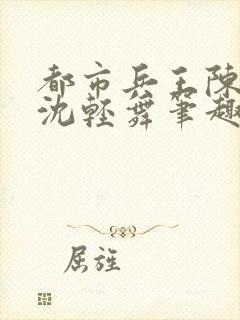 都市兵王陳
沈輕舞筆趣
屈旌